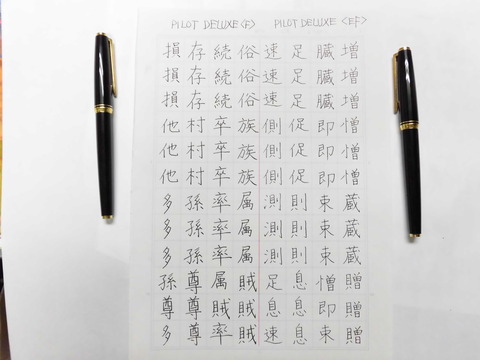 PILOT DELUXE<F> PILOT DELUXE <EF>
増増増憎憎憎蔵蔵蔵贈贈贈
臓臓臓即即即束束束憎即束
足足足促促促則則則息息息
速速速側側側測測測足息速
俗俗俗族族族属属属賊賊賊
続続続卒卒卒率率率属賊率
存存存村村村孫孫孫尊尊尊
損損損他他他多多多孫尊多